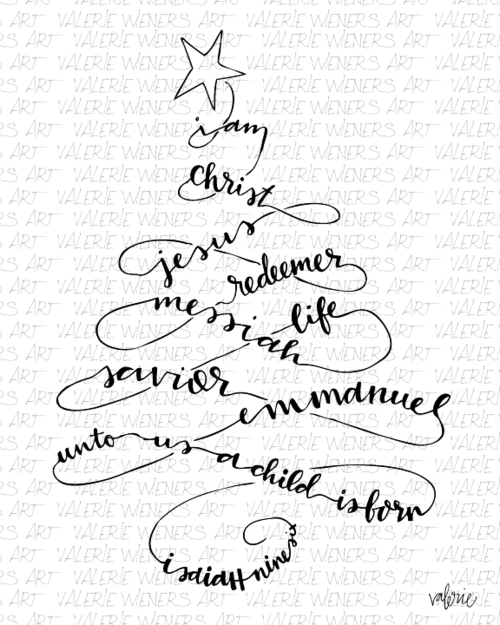 VALERIE WENERS ART
i am
christ
jesus
redeemer
messiah
life
savior
emmanuel
unto us a child is born
isaiah nine six
valerie